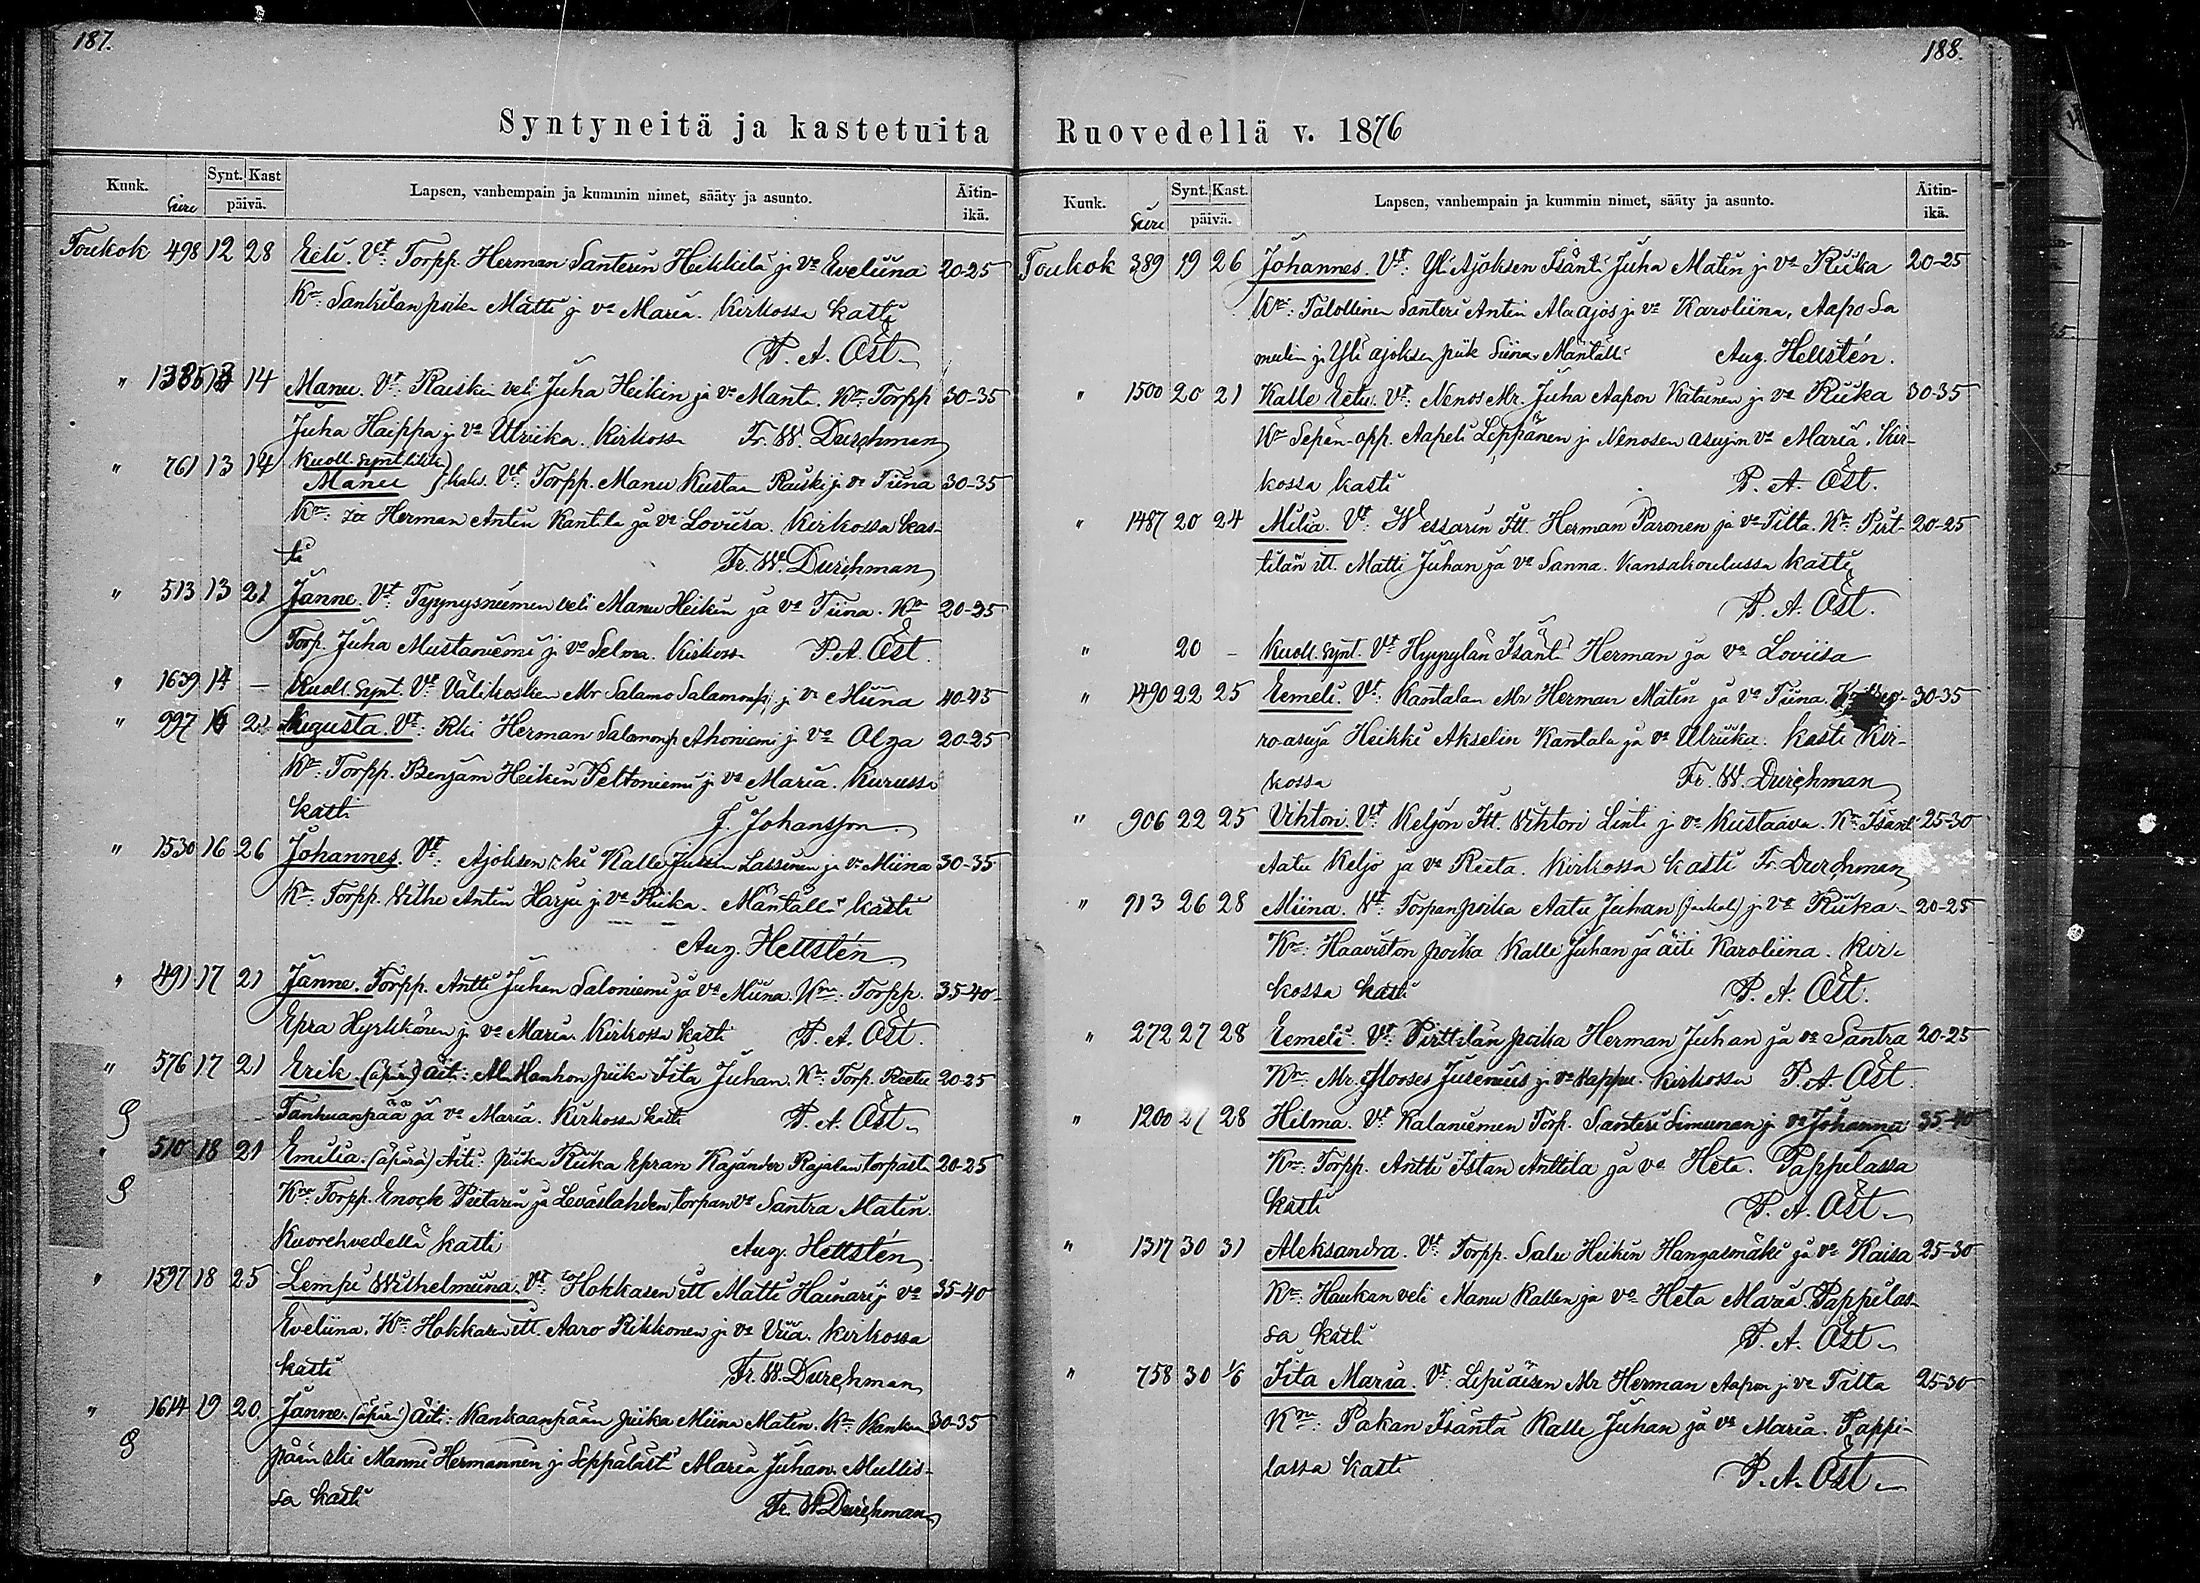 187.
Syntyneitä ja kastetuita
Kuuk. Synt. Kast päivä. Lapsen, vanhempain ja kummin nimet, sääty ja asunto. Äitin-ikä.
Toukok 498 12 28 Eeli. Vt. Torpp. Herman Santerin Heikkilä ja va Eveliina 20-25
Kr: poika Matti ja va Maria. Kirkossa kasti
P. A. Öst
" 1385 13 14 Manu. Vt. Raiskin veli Juha Heikin ja va Manta. Kr: Torpp 30-35
Juha Haippa ja va Ulriika. Kirkossa Fr. W. Durchman
" 761 13 14 Kuoll. synt.
Manu Vt: Torpp. Manu Kustaan Raiski ja va Tiina 30-35
Kr: Herman Antin Kantila ja va Loviisa. Kirkossa kas-
ti Fr. W. Durchman
" 513 13 21 Janne. Vt: Tyynysniemen veli Manu Heikin ja va Tiina. Kr 20-25
Torp. Juha Mustaniemi ja va Selma. Kirkossa P. A. Öst.
" 1639 14 — Kuoll. Synt. Vt Välikosken Mr Salamo ja va Miina 40-45
" 997 21 Augusta. Vt: Herman Ahoniemi ja va Olga 20-25
Kr: Torpp. Benjam Heikin Peltoniemi ja va Maria. Kurussa
kasti J. Johansson
" 1530 16 26 Johannes. Vt: Ajoksen Kalle Lassinen ja va Miina 30-35
Kr: Torpp. Ville Antin Harju ja va Riika. Mäntällä kasti
Aug. Hellstén
" 491 17 21 Janne. Torpp. Antti Juhan Saloniemi ja va Miina. Kr: Torpp. 35-40
Epra Hyrkkönen ja va Maria. Kirkossa kasti P. A. Öst.
" 576 17 21 Erik. (äpärä) äiti: piika Iita Juhan. Kr: Torp. Reetu 20-25
Tanhuanpää ja va Maria. Kirkossa kasti P. A. Öst
" 510 18 21 Emilia. (äpärä) Äiti: piika Riika Epran Kajander Rajalan torpasta 20-25
Kr: Torpp. Enock Peetarin ja Leväslahden torpan va Santra Matin.
Kuorehvedellä kasti Aug. Hellstén
" 1597 18 25 Lempi Wilhelmiina. Vt: Hokkasen itt Matti Hainari ja va 35-40
Eveliina. Kr: Hokkasen itt. Aaro Rikkonen ja va Viia. Kirkossa
kasti Fr. W. Durchman
" 1614 19 20. Janne. (äpärä) Äiti: Kankaanpään piika Miina Matin. Kr: Kankaan 30-35
pään Manne Hermannen ja Seppälästä Maria Juhan. Mullis-
sa kasti Fr. W Durchman
188.
Ruovedellä v. 1876
Kuuk. Synt. Kast. päivä. Lapsen, vanhempain ja kummin nimet, sääty ja asunto. Äitin-ikä.
Toukok 389 19 26 Johannes. Vt: Yli Ajoksen Isäntä Juha Matin ja va Riika 20-25
Kr: Talollinen Santeri Antin Ala ajos ja va Karoliina, Aapo Sa
mulin ja Yli ajoksen piik Siina. Mäntällä Aug. Hellstén.
" 1500 20 21 Kalle Eetu. Vt: Nenos Mr. Juha Aapon Katainen ja va Riika 30-35
Kr Sepän-opp. Aapeli Leppänen ja Nenosen asujan va Maria. Kir-
kossa kasti P. A. Öst.
" 1487 20 24 Milia. Vt: Wessarin Itt. Herman Paronen ja va Tilta. Kr: Pirt- 20-25
tilän itt. Matti Juhan ja va Sanna. Kansakoulussa kasti
P. A. Öst.
" 20 — Kuoll. Synt. Vt Hyypylän Isäntä Herman ja va Loviisa
" 1490 22 25 Eemeli. Vt: Kantalan Mr Herman Matin ja va Tiina. 30-35
ro-asuja Heikki Akselin Kantala ja va Ulriika. Kasti Kir-
kossa Fr. W. Durchman
" 906 22 25 Vihtori. Vt: Keljon Itt. Vihtori Linti ja va Kustaava. Kr: Isänt 25-30
Aatu Keljo ja va Reeta. Kirkossa kasti Fr. Durchman
" 913 26 28 Miina. Vt: Torpanpoika Aatu Juhan ja va Riika 20-25
Kr: Haaviston poika Kalle Juhan ja äiti Karoliina. Kir-
kossa kasti P. A. Öst.
" 272 27 28 Eemeli. Vt: Pirttilän poika Herman Juhan ja va Santra 20-25
Kr: Mr. Mooses Jusenius ja va Vappu. Kirkossa P. A. Öst.
" 1200 27 28 Hilma. Vt Kalaniemen Torp. Santeri Simunan ja va Johanna 35-40
Kr: Torpp. Antti Istan Anttila ja va Heta. Pappilassa
kasti P. A. Öst
" 1317 30 31 Aleksandra. Vt. Torpp. Salu Heikin Hangasmäki ja va Kaisa 25-30
Kr: Haukan veli Manu Kallen ja va Heta Maria. Pappilas-
sa kasti P. A. Öst
" 758 30 1/6 Iita Maria. Vt: Lipiäisen Mr Herman Aapon ja va Tilta 25-30
Kr: Pakan Isäntä Kalle Juhan ja va Maria. Pappi-
lassa kasti P. A. Öst